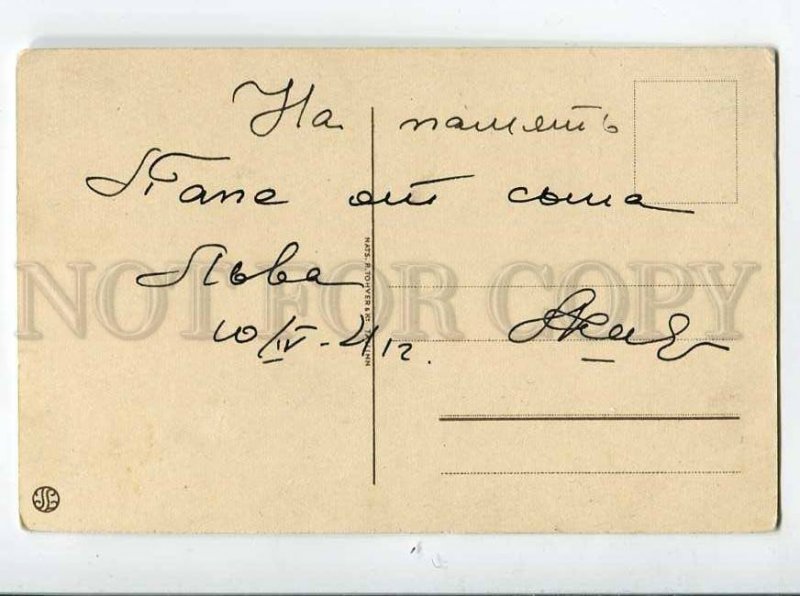 На память
Папе от сына
Льва
10/IV-41г.
NATS. R. TOHVER & Ko. TALLINN
NOT FOR COPY